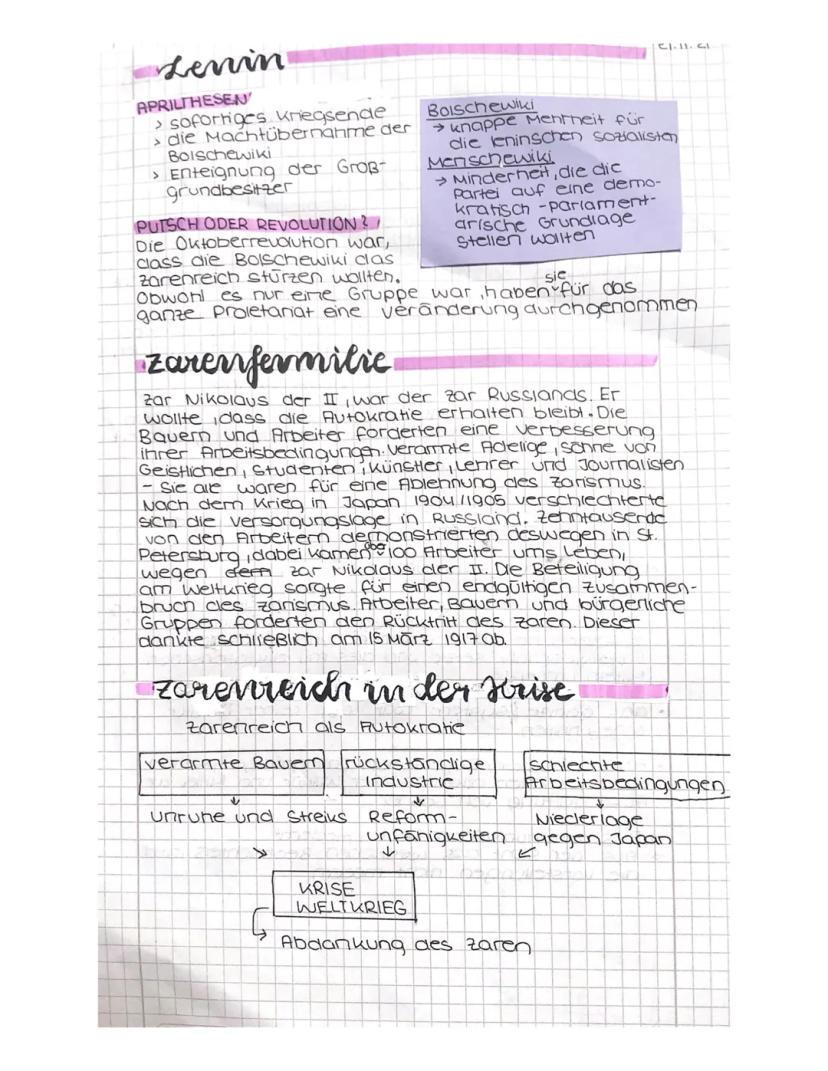 21.11.21
Lenin
APRILTHESEN
> sofortiges Kriegsende
> die Machtübernahme der
Bolschewiki
> Enteignung der Groß-
grundbesitzer
Bolschewiki
→ knappe Mehrheit für
die leninschen Sozialisten
Menschewiki
→ Minderheit, die die
Partei auf eine demo-
kratisch-parlament-
arische Grundlage
stellen wollten
PUTSCH ODER REVOLUTION?
Die Oktoberrevolution war,
dass die Bolschewiki das
Zarenreich stürzen wollten.
Obwohl es nur eine Gruppe war, haben sie für das
ganze Proletariat eine Veränderung durchgenommen
Zarenfamilie
Zar Nikolaus der II, war der Zar Russlands. Er
wollte, dass die Autokratie erhalten bleibt. Die
Bauern und Arbeiter forderten eine Verbesserung
ihrer Arbeitsbedingungen. Verarmte Adelige, Söhne von
Geistlichen, Studenten, Künstler, Lehrer und Journalisten
- Sie alle waren für eine Ablehnung des Zarismus.
Nach dem Krieg in Japan 1904/1905 verschlechterte
sich die Versorgungslage in Russland. Zehntausende
von den Arbeitern demonstrierten deswegen in St.
Petersburg, dabei kamen 100 Arbeiter ums Leben,
wegen dem Zar Nikolaus der II. Die Beteiligung
am Weltkrieg sorgte für einen endgültigen Zusammen-
bruch des Zarismus. Arbeiter, Bauern und bürgerliche
Gruppen forderten den Rücktritt des Zaren. Dieser
dankte schließlich am 15 März 1917 ab.
Zarenreich in der Krise
Zarenreich als Autokratie
verarmte Bauern
rückständige
Industrie
schlechte
Arbeitsbedingungen
Unruhe und Streiks
Reform-
unfähigkeiten
Niederlage
gegen Japan
KRISE
WELTKRIEG
Abdankung des Zaren